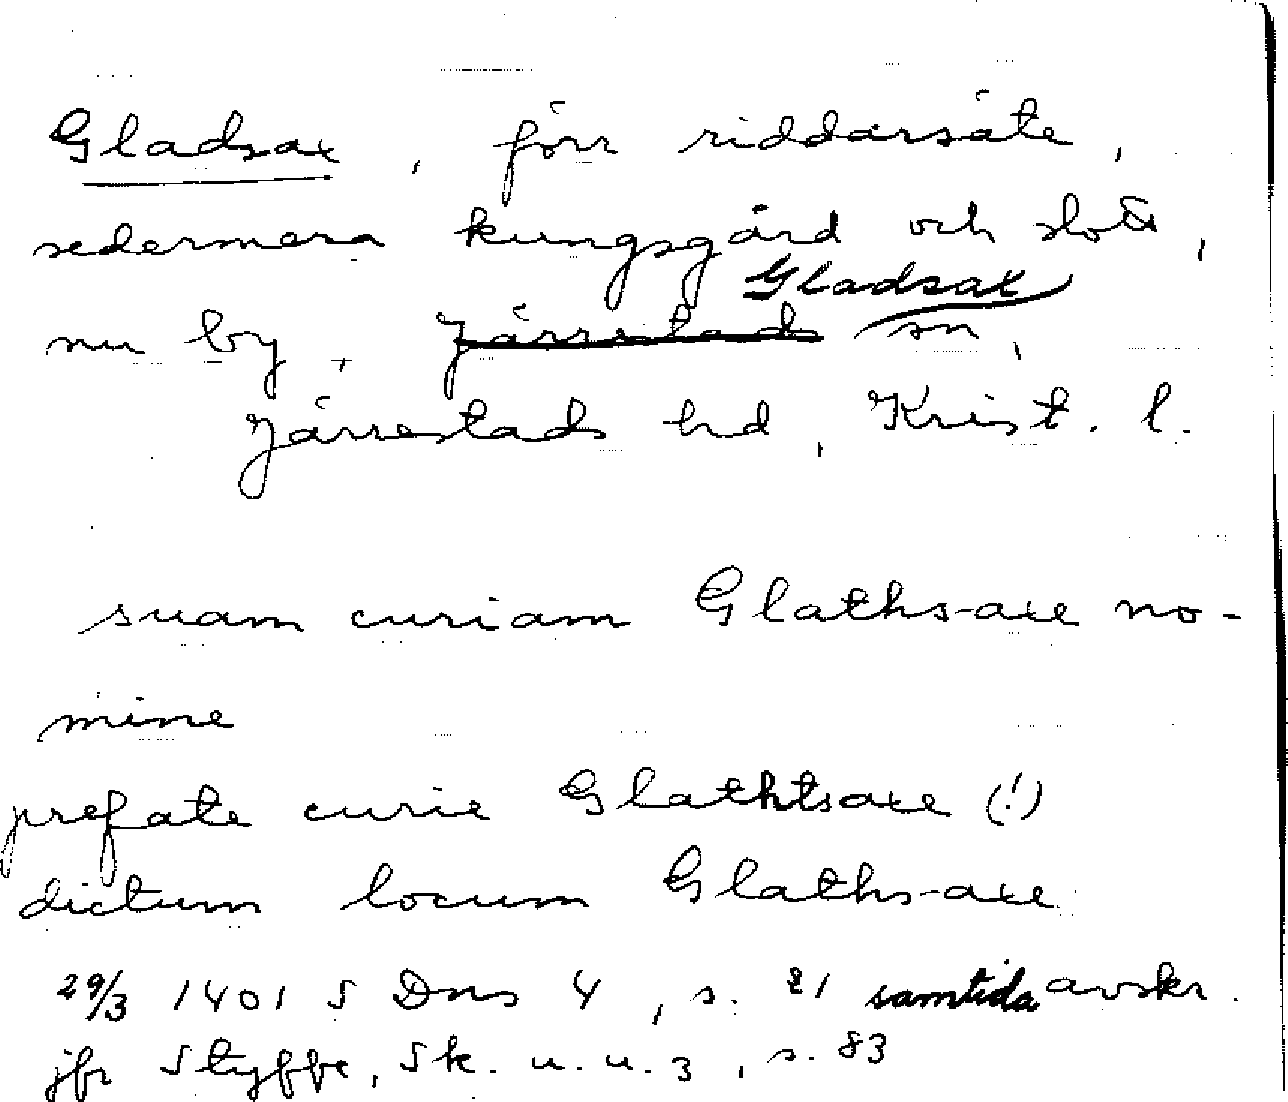 Gladsax, förr riddarsäte,
sedermera kungsgård och slott,
Gladsax
nu by, Järrestads sn,
Järrestads hd, Krist. l.
suam curiam Glaths-axe no-
mine
prefate curie Glathtsaxe (!)
dictum locum Glaths-axe
29/3 1401 S Dns 4, s. 21 samtida avskr.
jfr Styffe, Sk. u. u. 3, s. 83